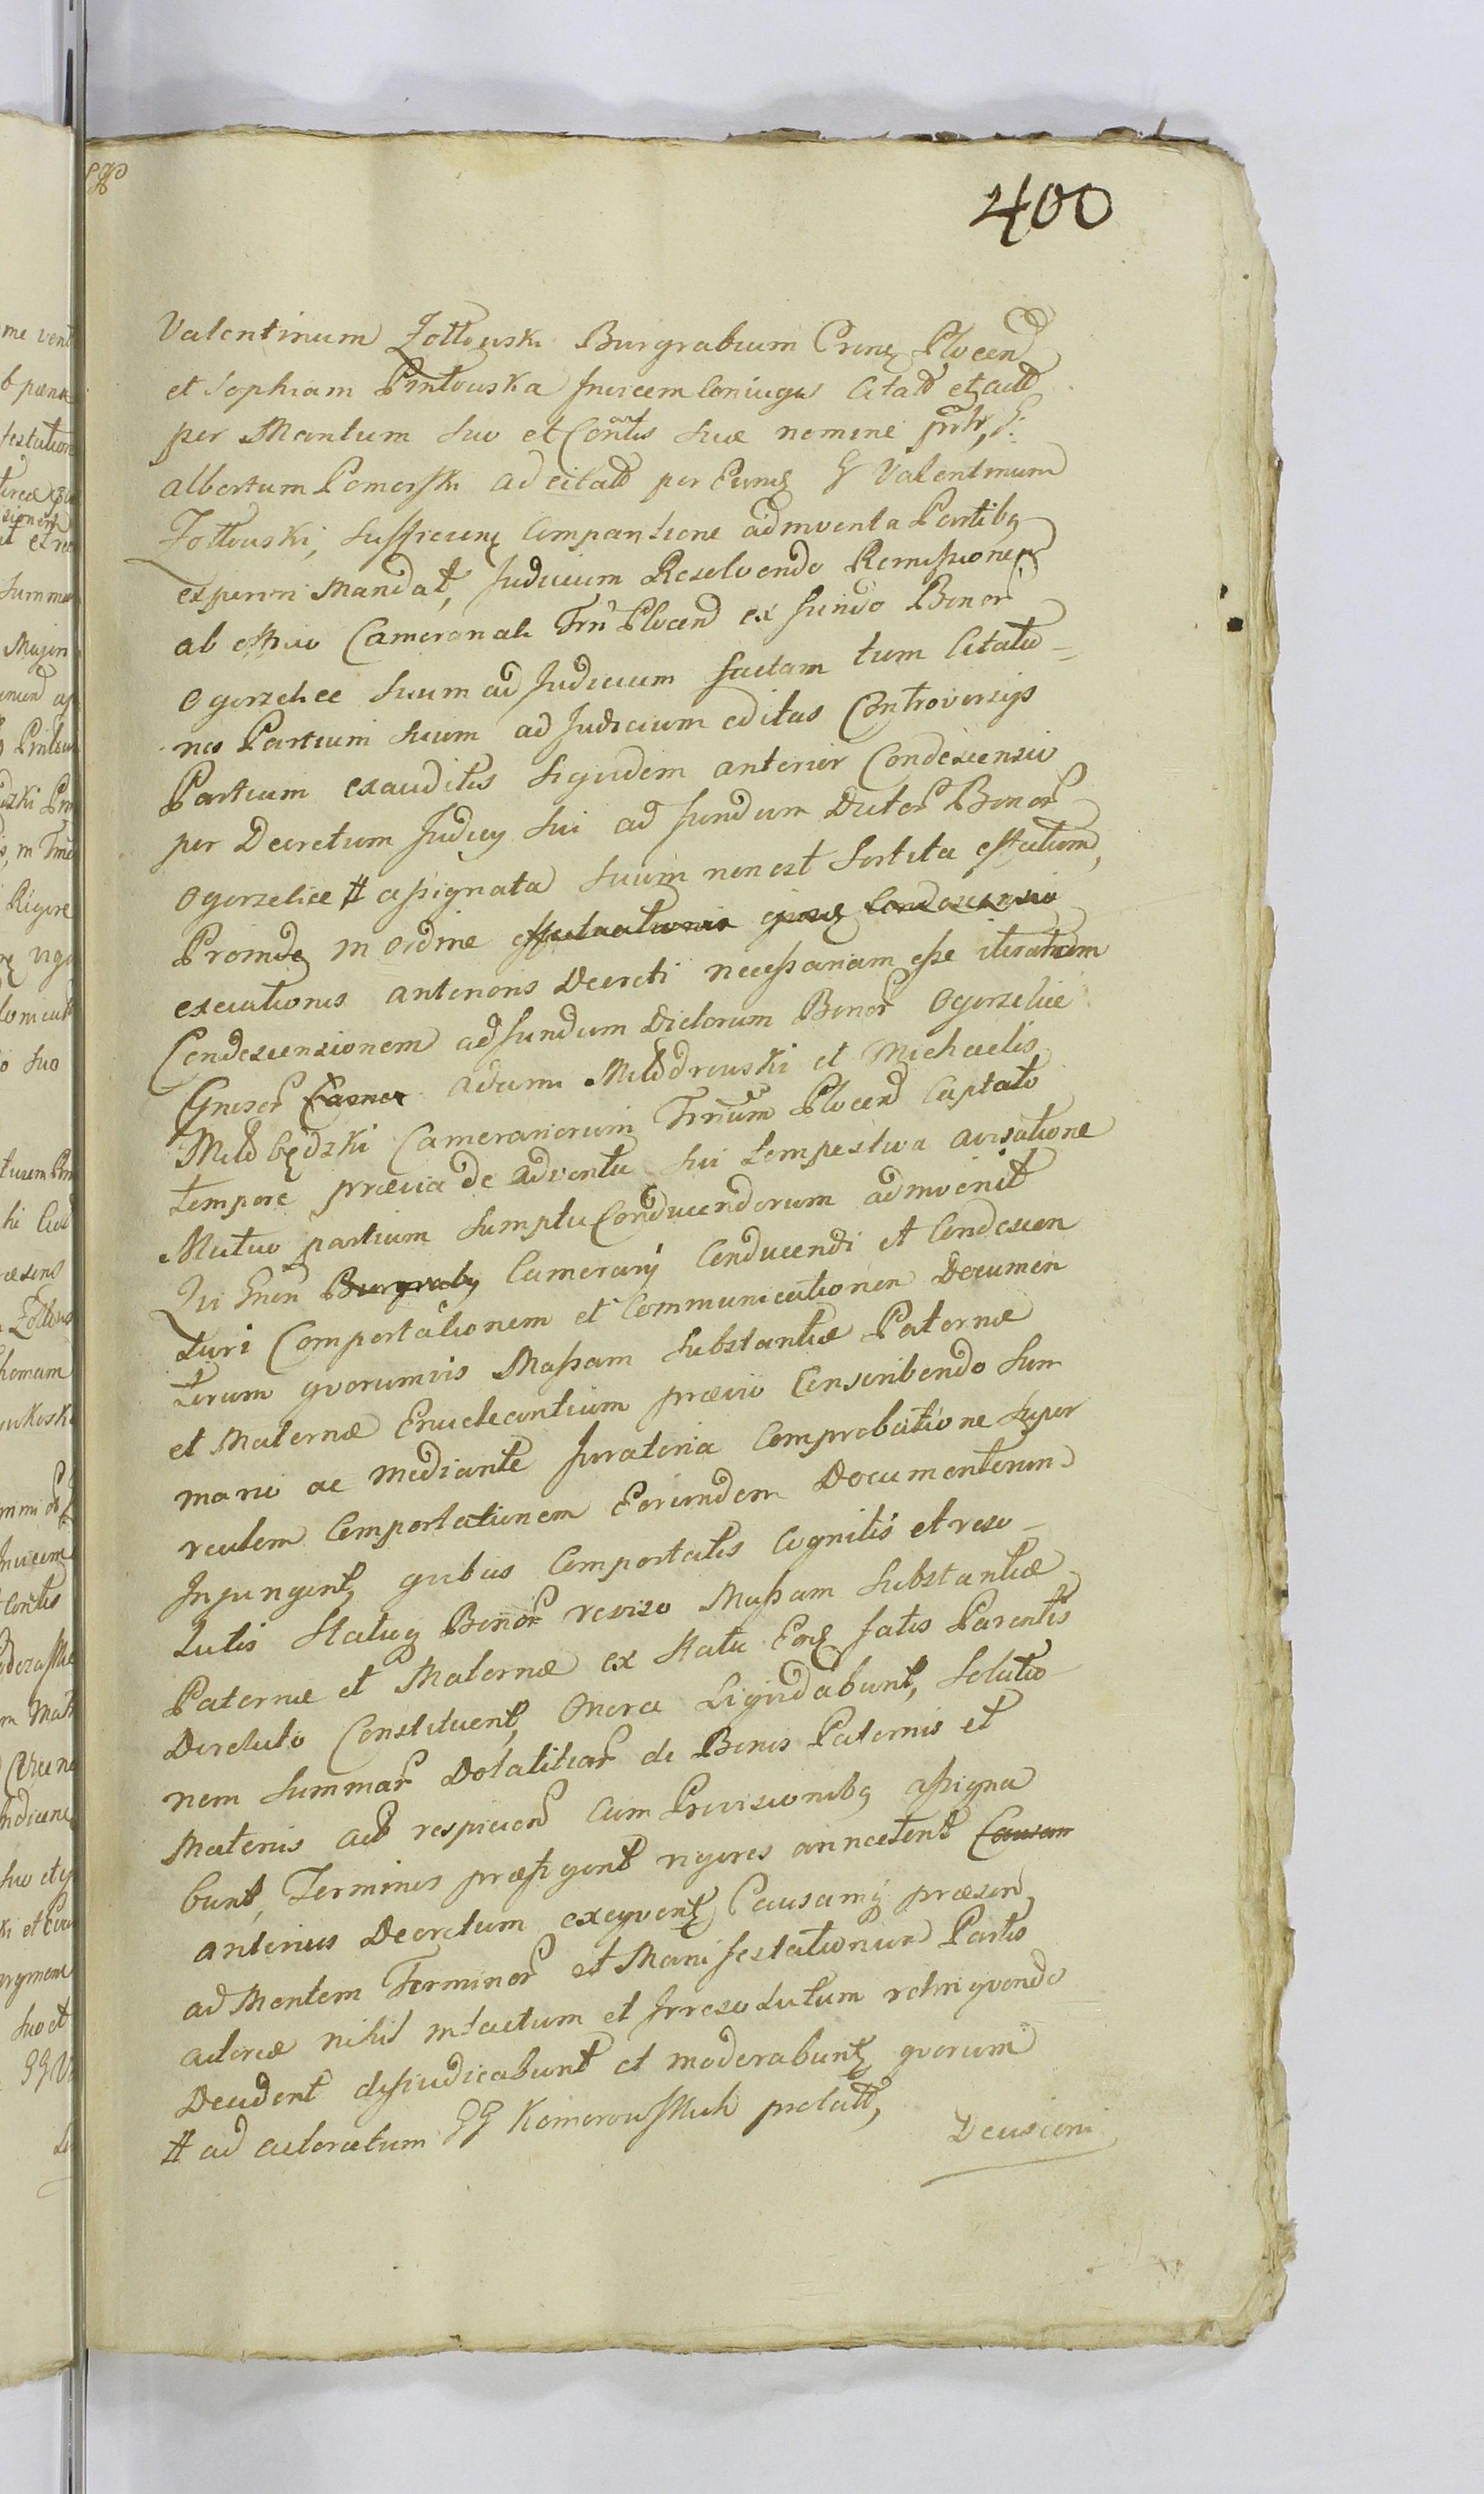 400
Valentinum Zołtowski Burgrabium Crens Plocen
et Sophiam Pintowska Invicem Coniuges Citatt et
per Maritum suo et Contis suæ nomine
albertum Pomorski ad citatt per Eund G Valentinum
Zołtowski, sufficienti Comparitione adinventa Partibq
experiri Mandat, Judicium Resolvendo Remissionem
ab officio Camerariali Trrii Plocen ex fundo Bonor
Ogorzelice suum ad Judicium factam tum Citatio-
nes Partium suum ad Judicium editas Controversijs
Partium exauditis siquidem anterior Condescensio
per Decretum Judicij sui ad fundum Dictor Bonor
Ogorzelice # assignata suum non est Sortita effectum,
Proinde in ordine effectuationis ejusd Condescensio
executionis anterioris Decreti necessariam esse iteratam
Condescensionem ad fundum Dictorum Bonor Ogorzelice
Gnesor adami Mdzdrewski et Michaelis
Camerariorum Trrium Plocen Captato
tempore prævia de adventu sui tempestiva avisatione
Mutuo partium sumptu Conducendorum adinvenit
Qui Gnesi Burgrabij Camerarij Conducendi et Condescen
suri Comportationem et Communicationem Documen
torum quorumvis Massam substantiæ Paternæ
et Maternæ Enucleantium prævio Conscribendo Sum
mario ac mediante Juratoria Comprobatione super
realem Comportationem Eorundem Documentorum
Injungent, quibus Comportatis Cognitis et reso-
lutis Statuq Bonor reviso Massam substantiæ
Paternæ et Maternæ ex statu Eod fatis Parentis
Derelicto Constituent, Onera Liquidabunt, Solutio
nem summar Dotalitiar de Bonis Paternis et
Maternis act respicien Cum Provisionibq assigna
bunt, Terminos præfigent rigores annectent Causam
anterius Decretum exequent, Causamq præsen
ad Mentem Terminor et Manifestationum Partis
actoreæ nihil intactum et Irresolutum relinquendo
Decident dijudicabunt et moderabunt, quorum
# ad actoratum GG Komorowskich prolatt,
Decisioni